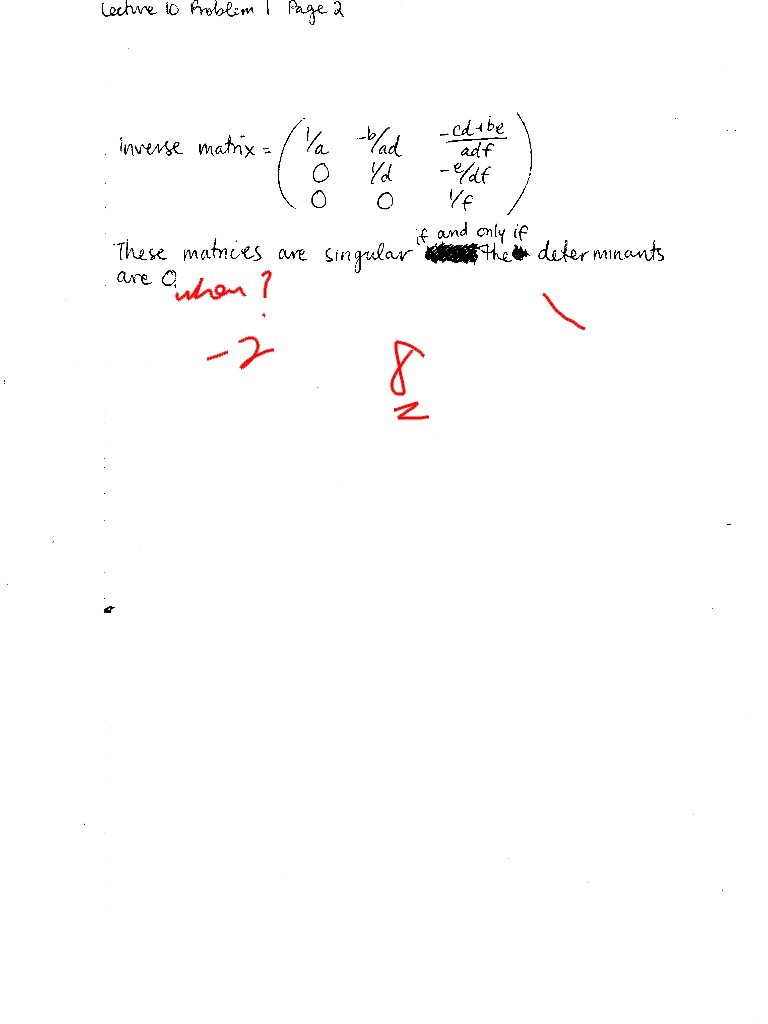 Lecture 10 Problem 1 Page 2
inverse matrix = ( 1/a -b/ad (-cd+be)/adf
0 1/d -e/df
0 0 1/f )
if and only if
These matrices are singular the determinants
are 0. when?
-2 8